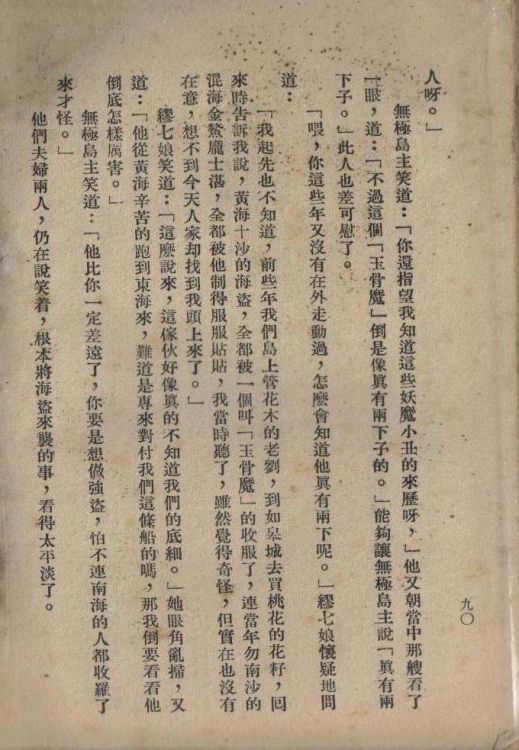 人呀。」
無極島主笑道：「你還指望我知道這些妖魔小丑的來歷呀，」他又朝當中那艘看了
一眼，道：「不過這個「玉骨魔」倒是像眞有兩下子的。」能夠讓無極島主說「眞有兩
下子。」此人也差可慰了。
「喂，你這些年又沒有在外走動過，怎麼會知道他眞有兩下呢。」繆七娘懷疑地問
道：
「我起先也不知道，前些年我們島上管花木的老劉，到如皋城去買桃花的花籽，囘
來時告訴我說，黃海十沙的海盜，全都被一個叫「玉骨魔」的收服了，連當年勿南沙的
混海金鰲龐士湛，全都被他制得服服貼貼，我當時聽了，雖然覺得奇怪，但實在也沒有
在意，想不到今天人家却找到我頭上來了。」
繆七娘笑道：「這麼說來，這傢伙好像眞的不知道我們的底細。」她眼角亂掃，又
道：「他從黃海辛苦的跑到東海來，難道是專來對付我們這條船的嗎，那我倒要看看他
倒底怎樣厲害。」
無極島主笑道：「他比你一定差遠了，你要是想做強盜，怕不連南海的人都收羅了
來才怪。」
他們夫婦兩人，仍在說笑着，根本將海盜來襲的事，看得太平淡了。
九〇